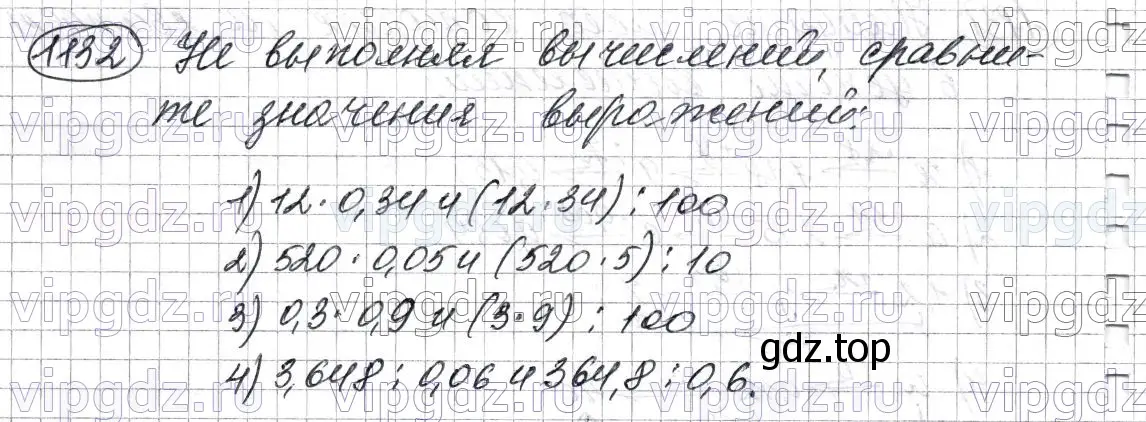 1132 Не выполняя вычислений, сравни-
те значения выражений:
1) 12 · 0,34 и (12 · 34) : 100
2) 520 · 0,05 и (520 · 5) : 10
3) 0,3 · 0,9 и (3 · 9) : 100
gdz.top
4) 3,648 : 0,06 и 364,8 : 0,6.
vipgdz.ru